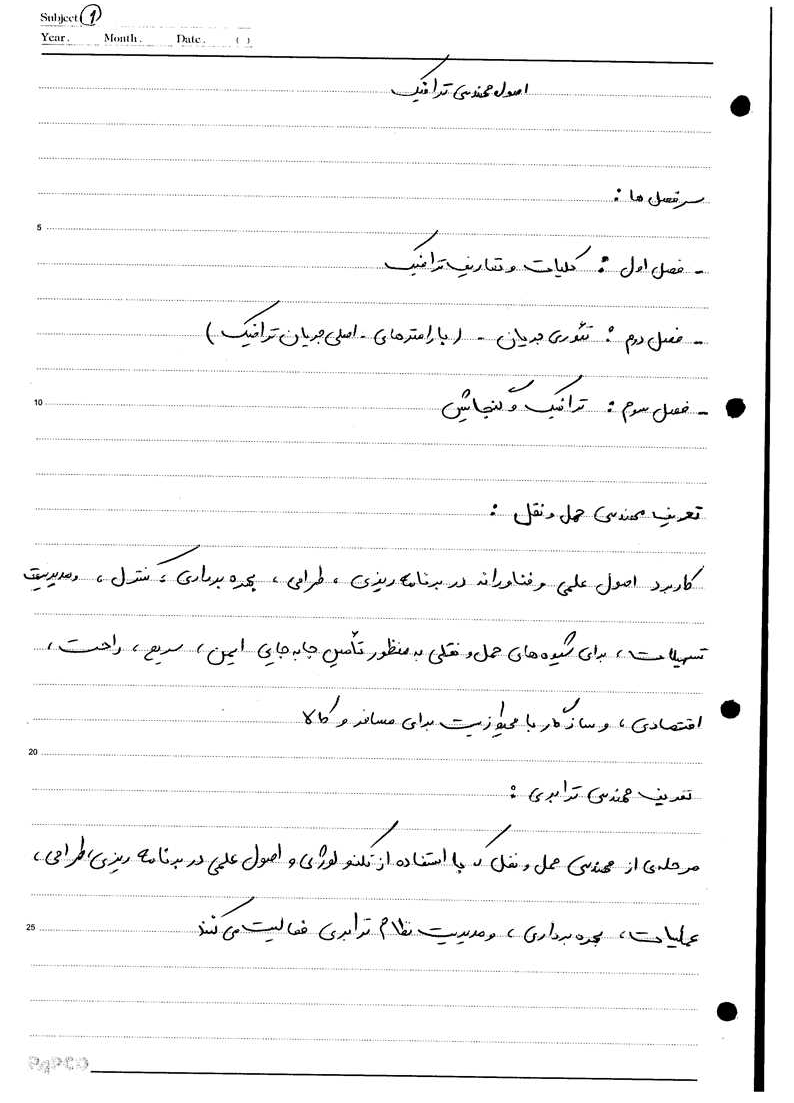 Subject: 1
Year. Month. Date. ( )
اصول مهندسی ترافیک
سرفصل ها :
5
- فصل اول : کلیات و تعاریف ترافیک
- فصل دوم : تئوری جریان - (پارامترهای - اصلی جریان ترافیک)
10
- فصل سوم : ترافیک و گنجایش
تعریف مهندسی حمل و نقل :
کاربرد اصول علمی و فناورانه در برنامه ریزی ، طراحی ، بهره برداری ، کنترل ، و مدیریت
تسهیلات ، برای شیوه های حمل و نقلی به منظور تأمین جابه جایی ایمن ، سریع ، راحت ،
اقتصادی ، و سازگار با محیط زیست برای مسافر و کالا
20
تعریف مهندسی ترابری :
مرحله ی از مهندسی حمل و نقل که با استفاده از تکنولوژی و اصول علمی در برنامه ریزی ، طراحی ،
25
عملیات ، بهره برداری ، و مدیریت نظام ترابری فعالیت می کنند
PAPCO